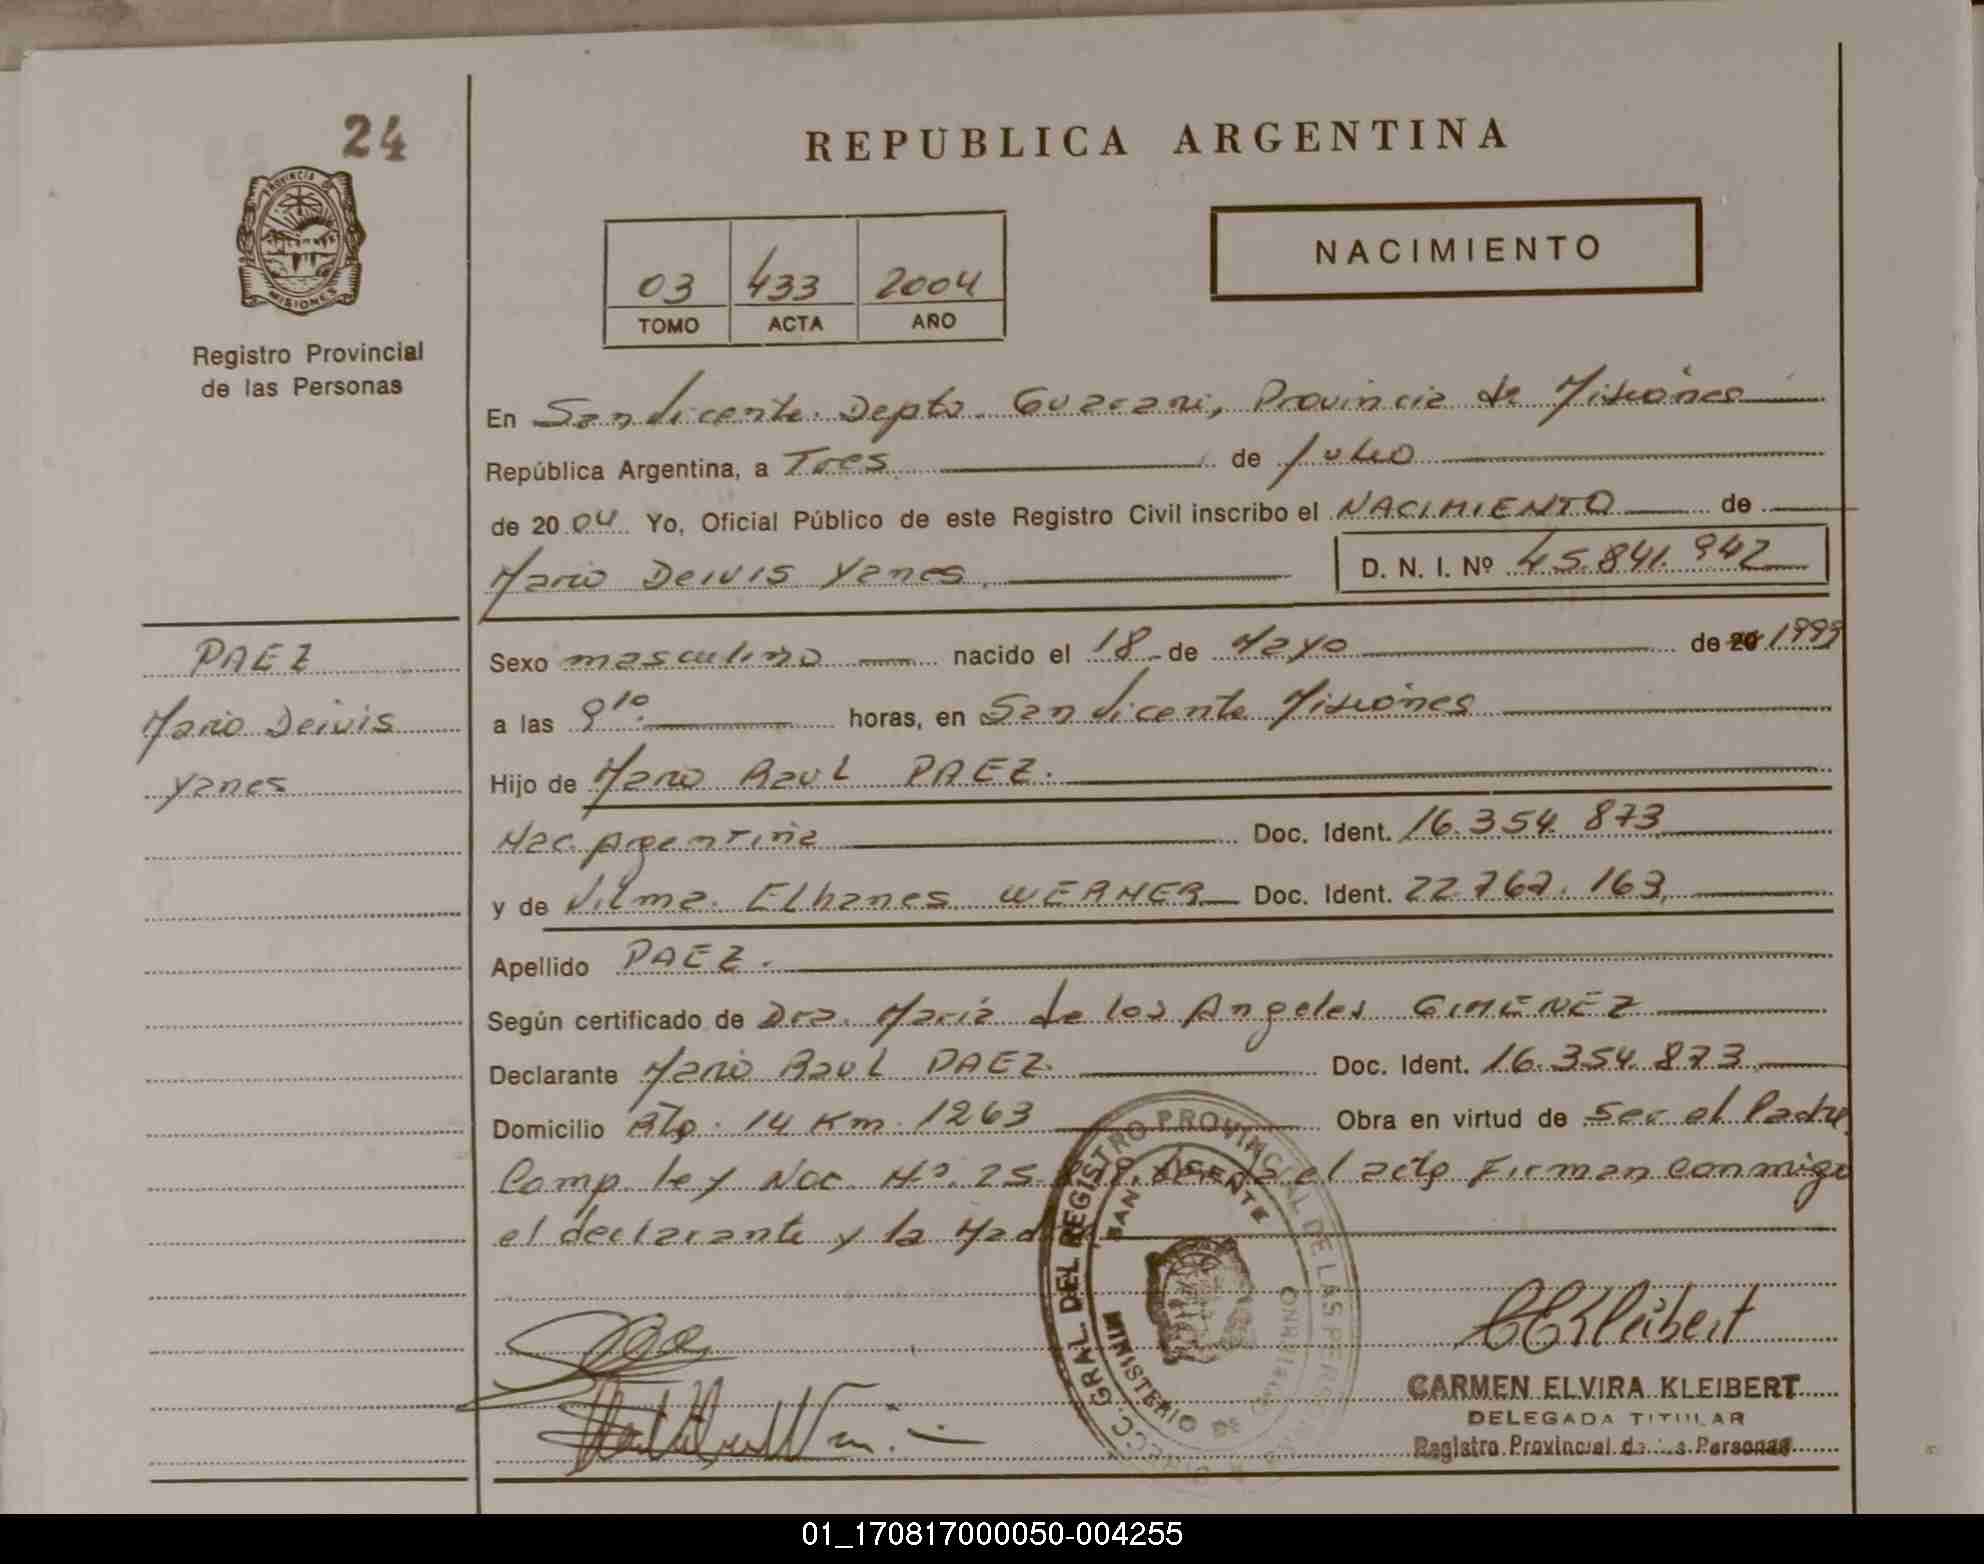 24
PROVINCIA DE
MISIONES
Registro Provincial
de las Personas
REPUBLICA ARGENTINA
NACIMIENTO
03 433 2004
TOMO ACTA AÑO
En San Vicente. Depto. Guarani, Provincia de Misiones
República Argentina, a Tres de Julio
de 2004 Yo, Oficial Público de este Registro Civil inscribo el NACIMIENTO de
Mario Deivis Yanes D. N. I. Nº 45.841.942
PAEZ
Mario Deivis
Yanes
Sexo masculino nacido el 18 de Mayo de 20 1999
a las 9 10 horas, en San Vicente Misiones
Hijo de Mario Raul PAEZ.
Nac. Argentina Doc. Ident. 16.354.873
y de Vilma Elhanes WERNER Doc. Ident. 22.767.163
Apellido PAEZ.
Según certificado de Dra. Maria de los Angeles GIMENEZ
Declarante Mario Raul PAEZ. Doc. Ident. 16.354.873
Domicilio Rta. 14 Km. 1263 Obra en virtud de Ser el Padre
Comp. ley Nac. Nº. 25. el acto Firman conmigo
el declarante y la Madre
DIRECC. GRAL. DEL REGISTRO PROVINCIAL DE LAS PERSONAS
SAN VICENTE
MINISTERIO DE
CEKleibert
CARMEN ELVIRA KLEIBERT
DELEGADA TITULAR
Registro Provincial de las Personas
01_170817000050-004255